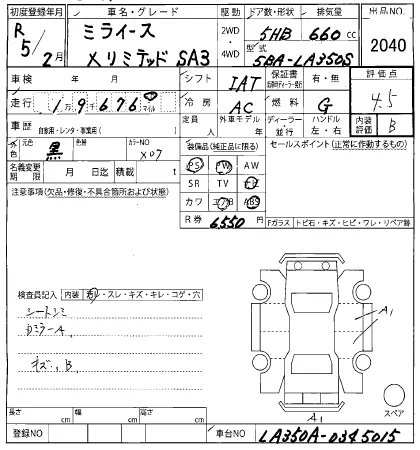 初度登録年月 車名・グレード 駆動 ドア数・形状 排気量 出品NO.
R5/2月 ミライース 2WD・4WD 5HB 660cc 2040
XリミテッドSA3 型式 5BA-LA350S
車検 年 月 シフト IAT 保証書 有・無 評価点
走行 1万9676 マイル 冷房 AC 燃料 G 4.5
車歴 自家用・レンタ・事業用( ) 定員 人 外車モデル 年 ディーラー・並行 ハンドル 左・右 内装評価 B
外色 元色 黒 色替 カラーNO X07 装備品(純正品に限る) セールスポイント(正常に作動するもの)
名義変更期限 月 日迄 積載 t PS PW AW
注意事項(欠品・修復・不具合箇所および状態) SR TV
カワ エアB ABS
R券 6,550円 Fガラス トビ石・キズ・ヒビ・ワレ・リペア跡
検査員記入 内装 ヨゴレ・スレ・キズ・キレ・コゲ・穴
シートシミ
カミラーA
キズ、B
A1
A1
スペア
長さ cm 幅 cm 高さ cm
登録NO 車台NO LA350A-0345015